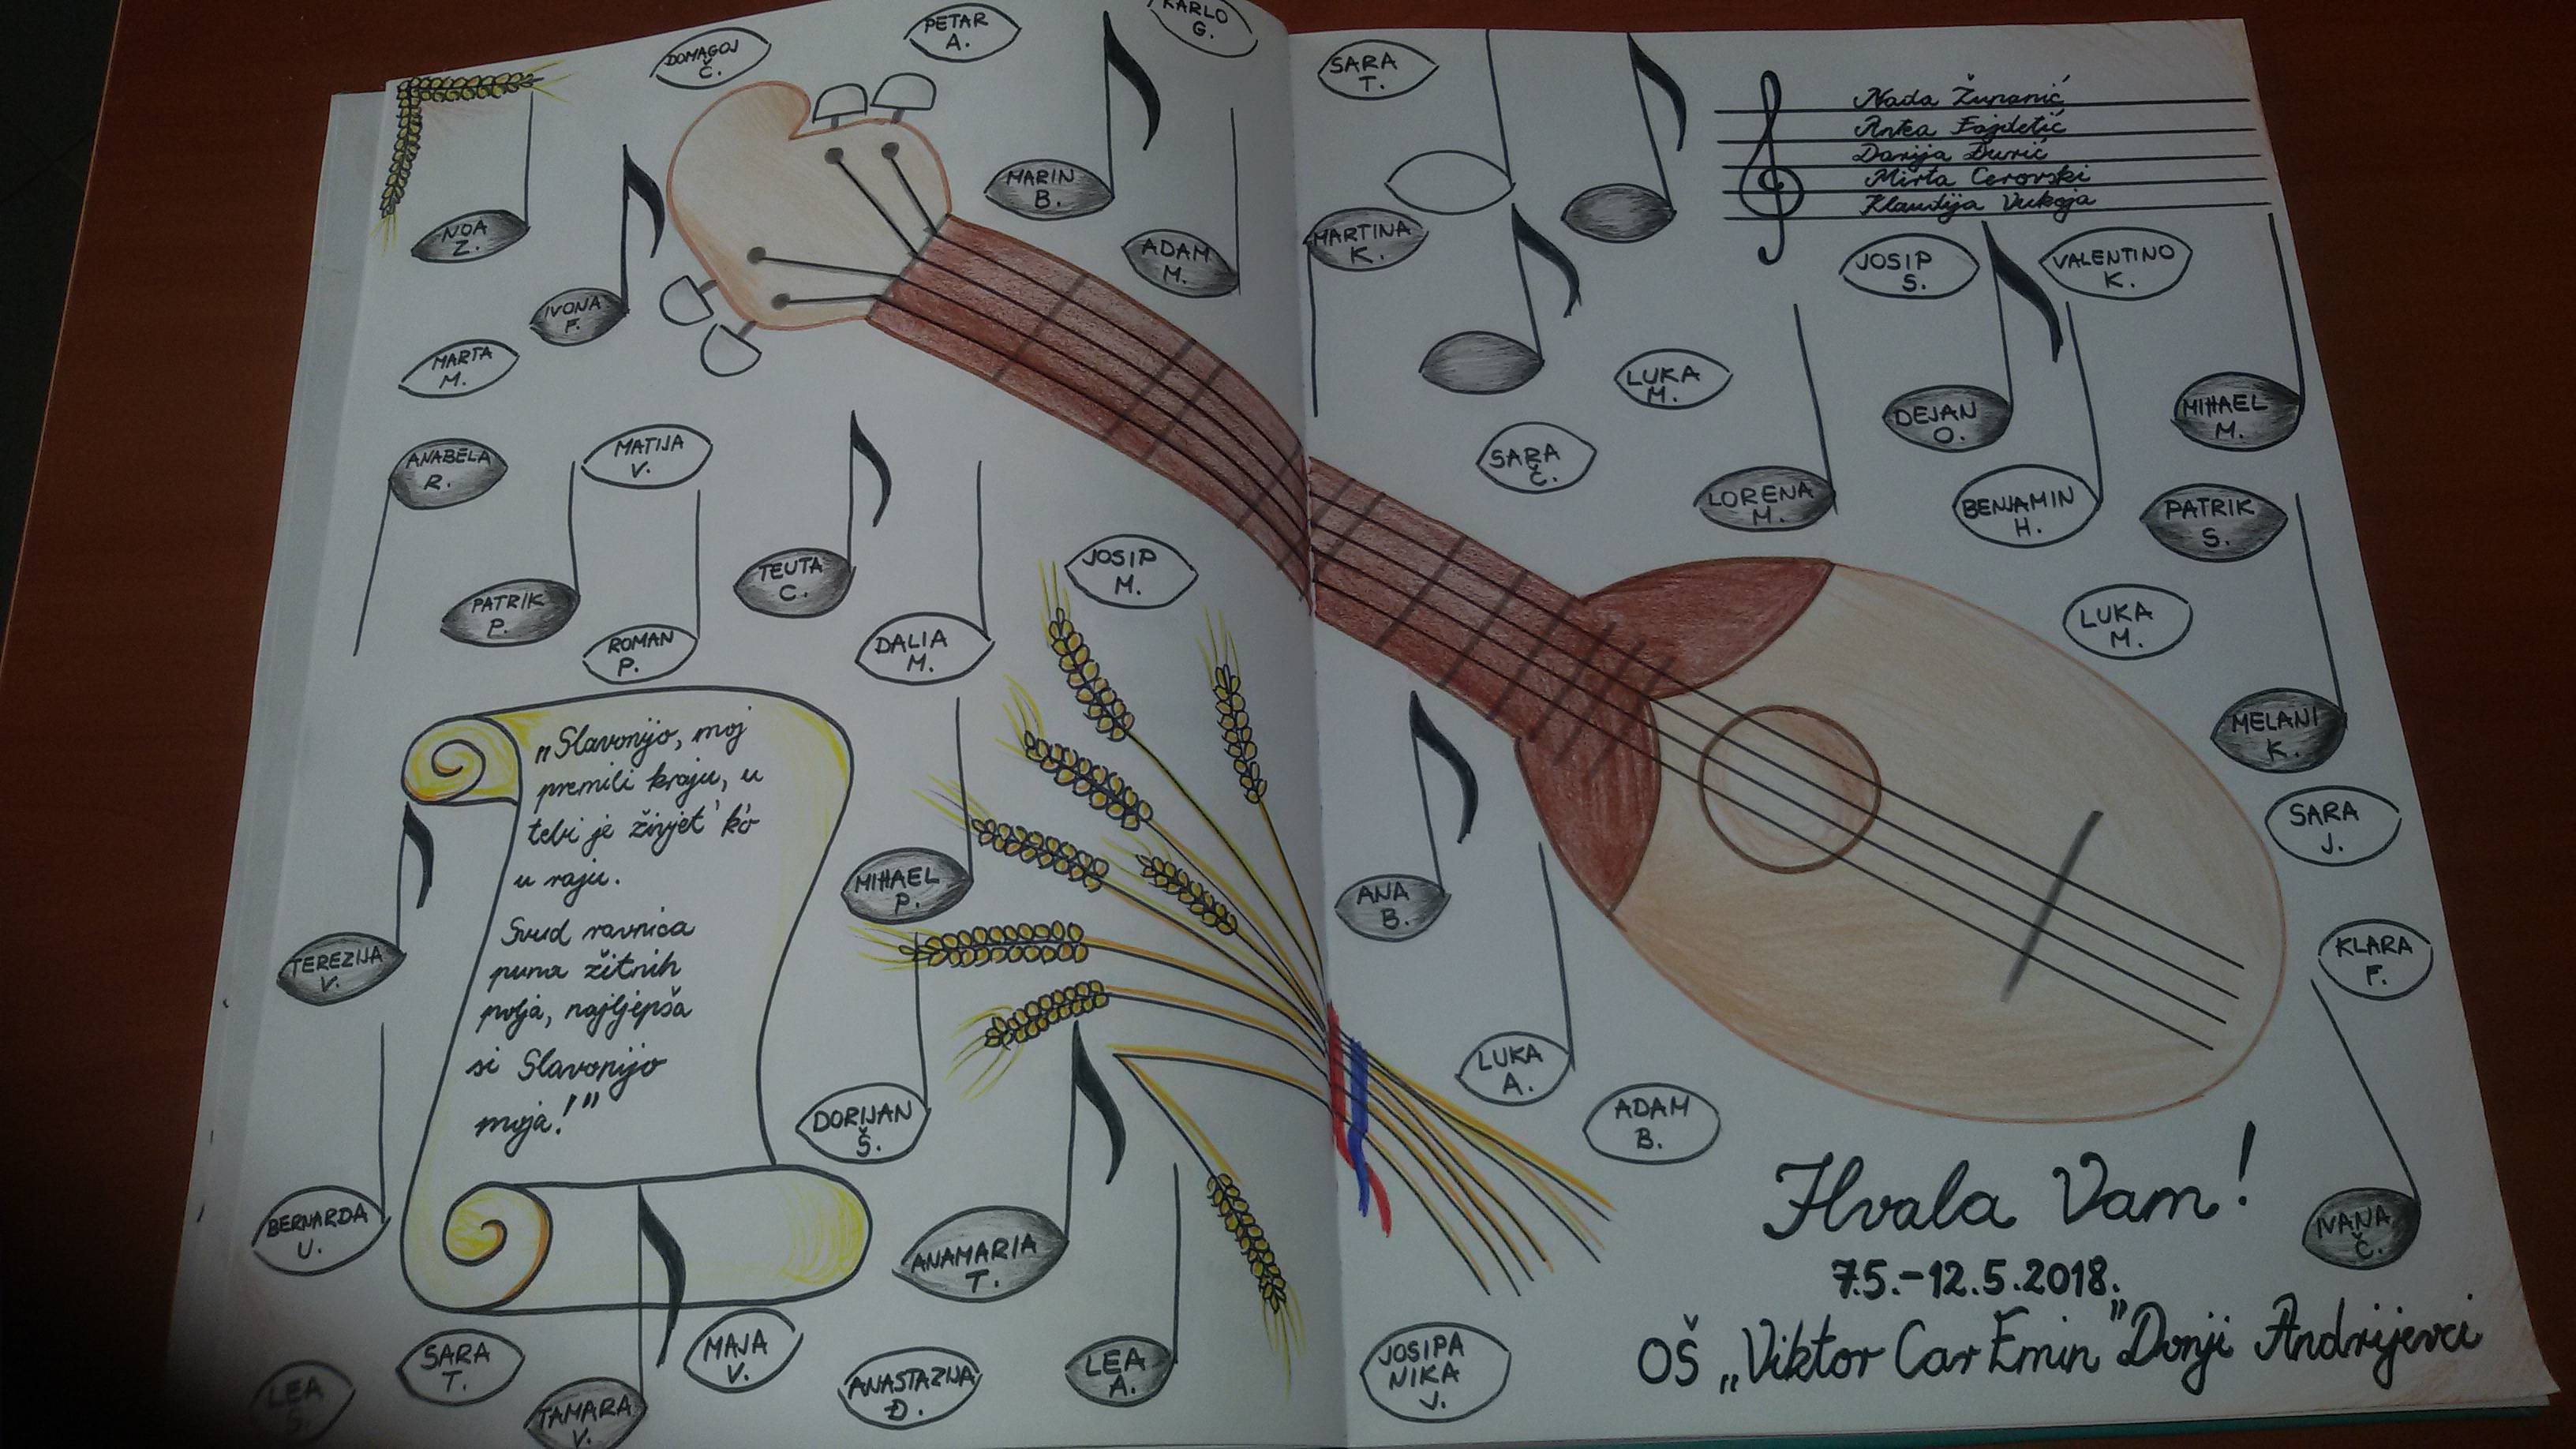 DOMAGOJ
Č.
PETAR
A.
KARLO
G.
NOA
Z.
IVONA
F.
MARIN
B.
ADAM
M.
MARTA
M.
ANABELA
R.
MATIJA
V.
PATRIK
P.
ROMAN
P.
TEUTA
C.
DALIA
M.
JOSIP
M.
„Slavonijo, moj
premili kraju, u
tebi je živjet' k'o
u raju.
Svud ravnica
puna žitnih
polja, najljepša
si Slavonijo
moja!"
MIHAEL
P.
TEREZIJA
V.
DORIJAN
Š.
BERNARDA
U.
ANAMARIA
T.
LEA
S.
SARA
T.
TAMARA
V.
MAJA
V.
ANASTAZIJA
Đ.
LEA
A.
SARA
T.
Nada Županić
Antea Fajdetić
Darija Đurić
Mirta Cerovski
Klaudija Vukoja
MARTINA
K.
JOSIP
S.
VALENTINO
K.
LUKA
M.
DEJAN
O.
MIHAEL
M.
SARA
Č.
LORENA
M.
BENJAMIN
H.
PATRIK
S.
LUKA
M.
MELANI
K.
SARA
J.
ANA
B.
KLARA
F.
LUKA
A.
ADAM
B.
IVANA
Č.
JOSIPA
NIKA
J.
Hvala Vam!
7.5.-12.5.2018.
OŠ „Viktor Car Emin" Donji Andrijevci